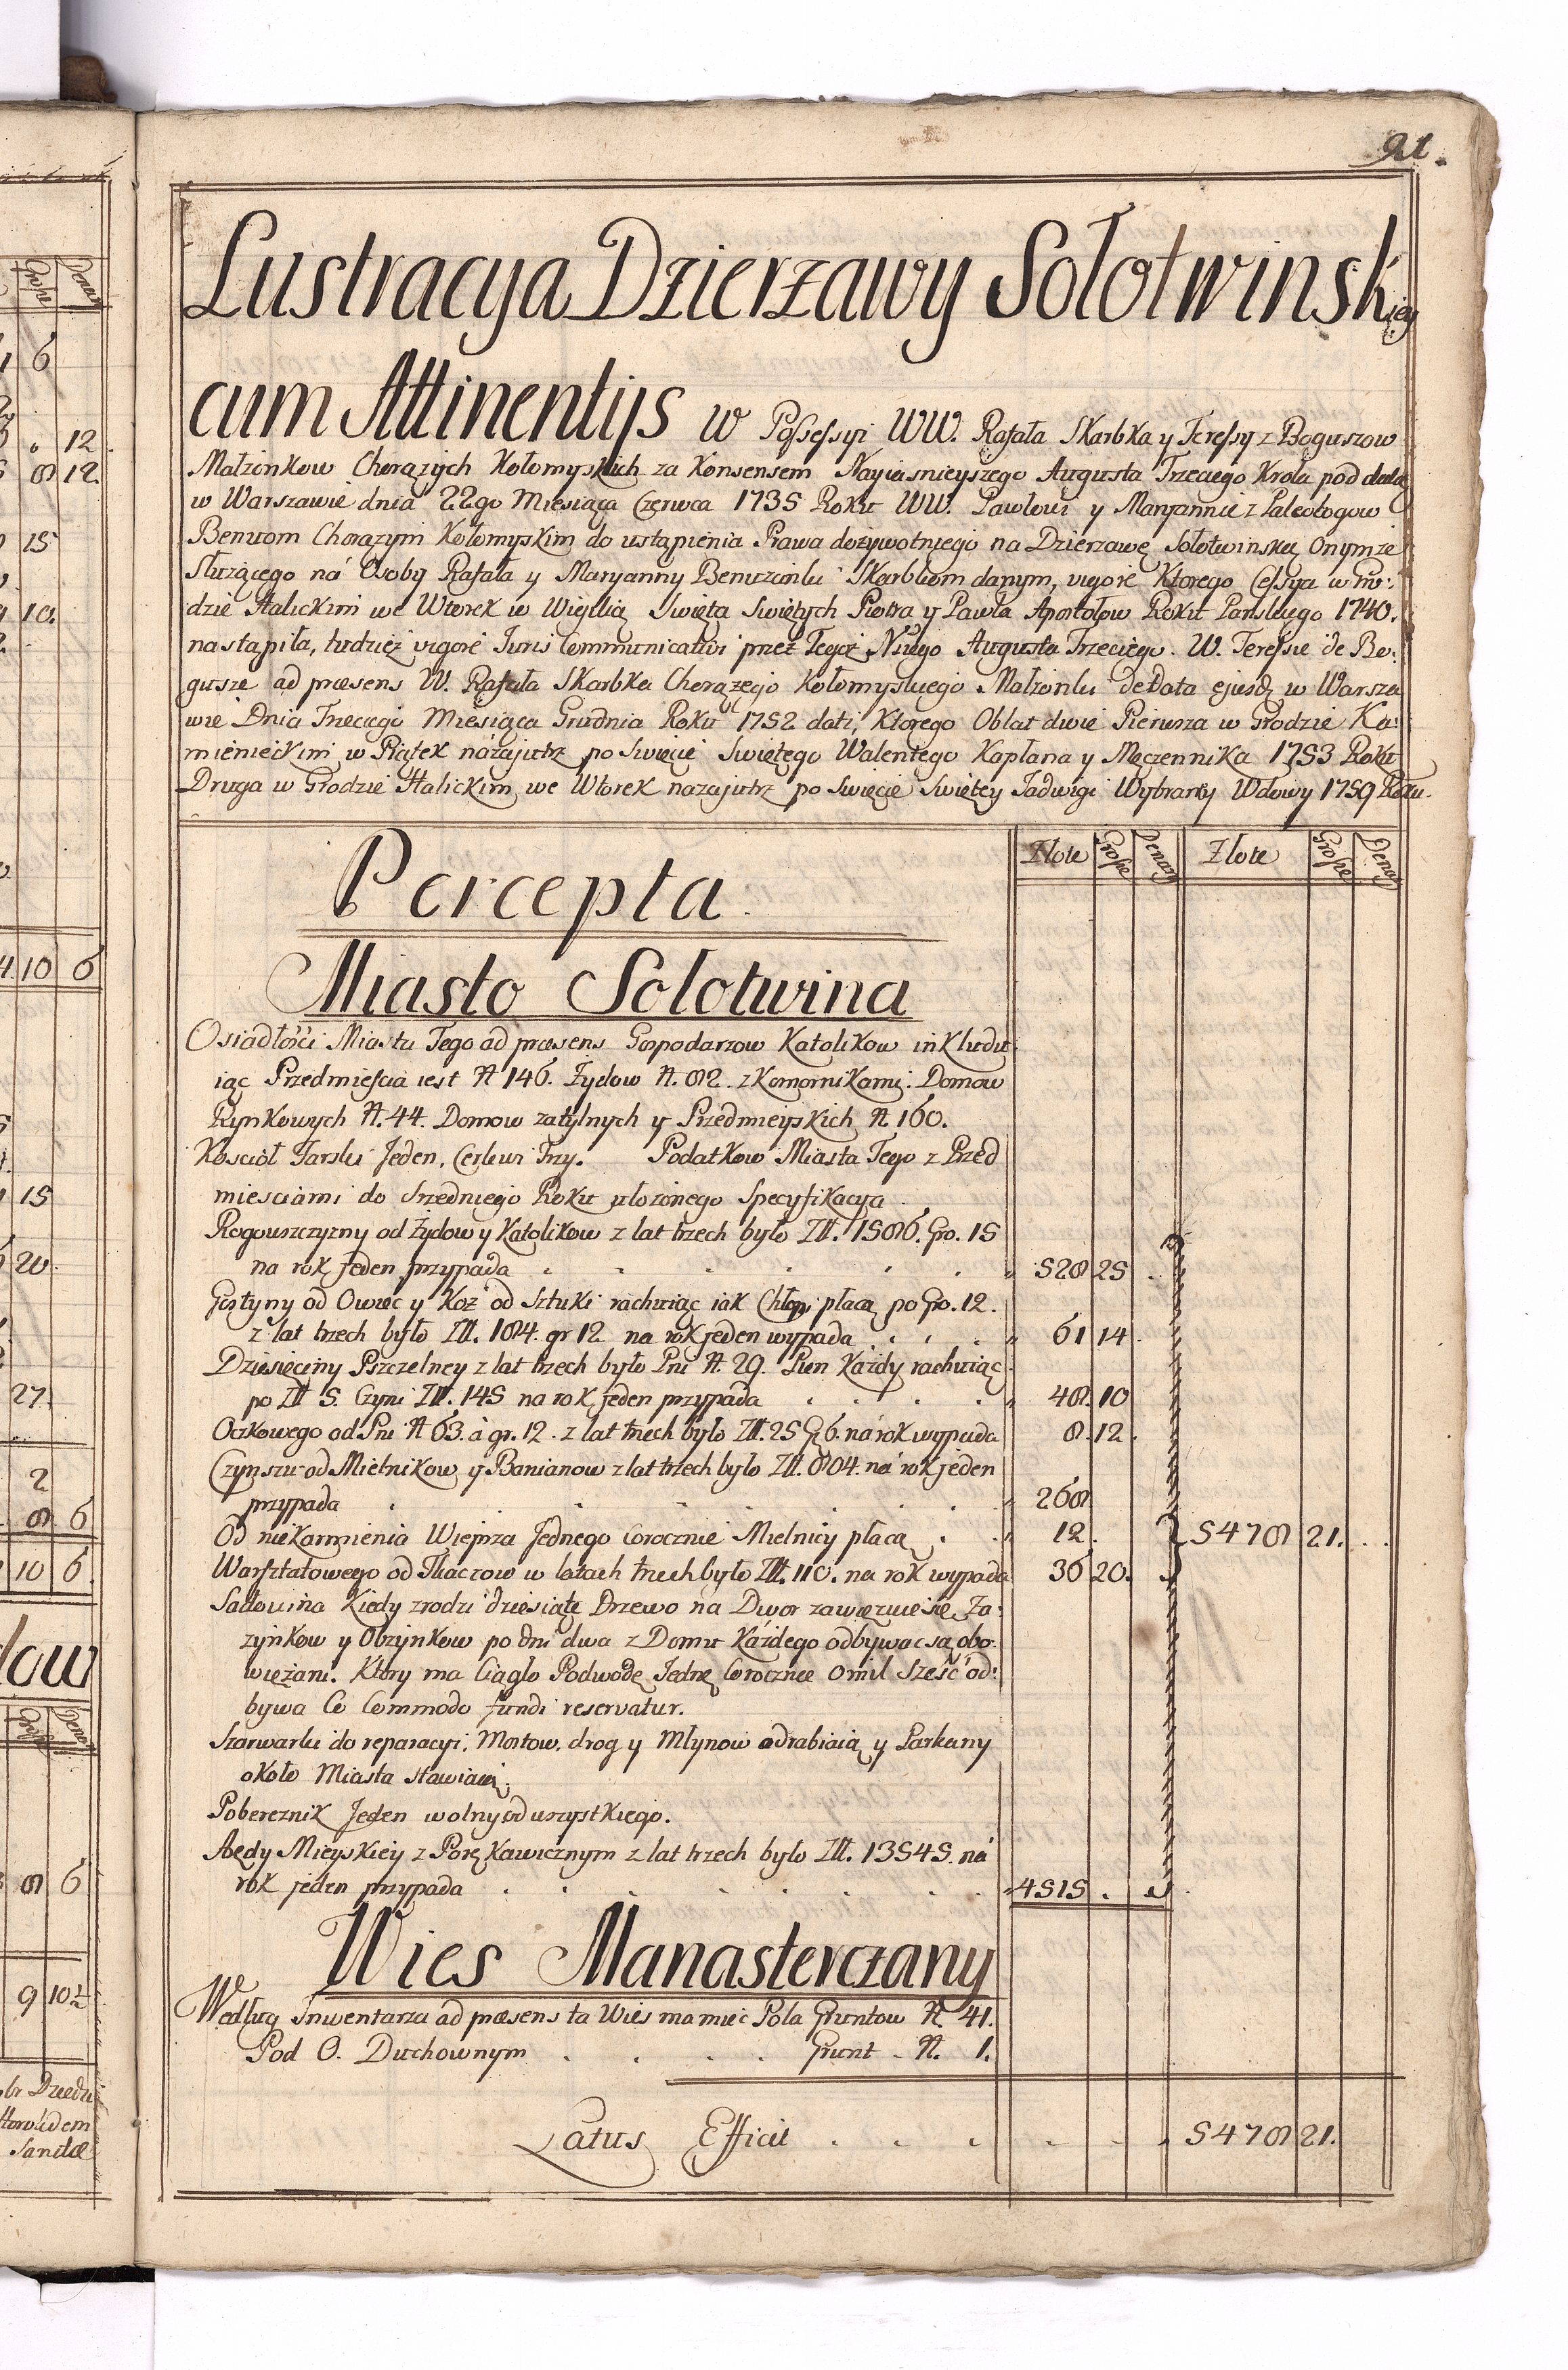 21.
Lustracya Dzierzawy Sołotwinskiey
cum Attinentijs w Possessyi WW. Rafała Skarbka y Teressy z Boguszow
Małżonkow Chorążych Kołomyskich za Konsensem Nayiasnieyszego Augusta Trzeciego Krola pod datą
w Warszawie dnia 22go Miesiąca Czerwca 1735 Roku WW. Pawłowi y Maryannie z Paleologow
Benuom Chorązym Kołomyskim do ustąpienia Prawa dożywotniego na Dzierzawę Sołotwinską Onymże
Służącego na Osoby Rafała y Maryanny Skarbkom danym, vigore Ktorego Cessya w Gro:
dzie Halickim we Wtorek w Wigilią Swięta Swiętych Piotra y Pawła Apostołow Roku Panskiego 1740.
nastąpiła, tudzież vigore Juris Communicativi przez Tegoż Augusta Trzeciego. W. Teressie de Bo:
gusze ad præsens W. Rafała Skarbka Chorązego Kołomyskiego Małżonki de Data ejusd. w Warsza
wie Dnia Trzeciego Miesiąca Grudnia Roku 1752 dati, Ktorego Oblat dwie Pierwsza w Grodzie Ka:
mienieckim w Piątek nazajutrz po Swięcie Swiętego Walentego Kapłana y Męczennika 1753 Roku
Druga w Grodzie Halickim we Wtorek nazajutrz po Swięcie Swiętey Jadwigi Wybraney Wdowy 1759 Roku.
Złote Grosze Denar Złote Grosze Denar
Percepta.
Miasto Solotwina
Osiadłości Miasta Tego ad præsens Gospodarzow Katolikow inkludu:
iąc Przedmieścia iest N 146. Żydow N. 82. z Komornikami. Domow
Rynkowych N. 44. Domow zatylnych y Przedmieyskich N 160.
Kosciół Farski Jeden, Cerkwi Trzy. Podatkow Miasta Tego z Przed
miesciami do Srzedniego Roku ułożonego Specyfikacya
Rogowszczyzny od Żydow y Katolikow z lat trzech było Zlł. 1586. Gro. 15
na rok jeden przypada 528 25
Gostyny od Owiec y Koz od Sztuki rachuiąc iak Chłopi płacą po Gro. 12.
z lat trzech było Zlł. 184. gr 12 na rok jeden wypada 61 14
Dziesięciny Pszczelney z lat trzech było Pni N. 29. Pien Każdy rachuiąc
po Zlł 5. Czyni Zlł. 145 na rok jeden przypada 48. 10
Oczkowego od Pni N 63. à gr. 12. z lat trzech było Zlł. 25 Gr 6. na rok wypada 8. 12.
Czynszu od Mielnikow y Banianow z lat trzech było Zlł. 804. na rok jeden
przypada 268.
Od niekarmienia Wieprza Jednego Corocznie Mielnicy płacą 12. 5478 21.
Warsztatowego od Tkaczow w latach trzech było Zlł. 110. na rok wypada 36 20.
Sadowina Kiedy zrodzi dziesiąte Drzewo na Dwor zawięzuie się Za:
zynkow y Obzynkow po dni dwa z Domu Każdego odbywac są obo
więzani. Ktory ma Ciągło Podwodę Jednę Corocznie o mil sześć od:
bywa Co Commodo fundi reservatur.
Szarwarki do reparacyi, Mostow, drog y Młynow odrabiaią y Parkany
około Miasta stawiaią.
Pobereznik Jeden wolny od wszystkiego.
Arędy Mieyskiey z Porękawicznym z lat trzech było Zlł. 13545. na
rok jeden przypada 4515
Wies Manasterczany
Według Inwentarza ad præsens ta Wies ma miec Pola Gruntow N. 41.
Pod O. Duchownym Grunt N. 1.
Latus Efficit 5478 21.